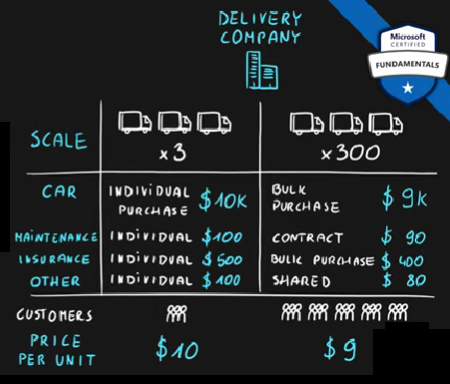 DELIVERY
COMPANY
Microsoft
CERTIFIED
FUNDAMENTALS
SCALE
x3
x300
CAR
INDIVIDUAL
PURCHASE
$10K
BULK
PURCHASE
$9K
MAINTENANCE INDIVIDUAL $100 CONTRACT $90
INSURANCE INDIVIDUAL $500 BULK PURCHASE $400
OTHER INDIVIDUAL $100 SHARED $80
CUSTOMERS
PRICE
PER UNIT
$10
$9